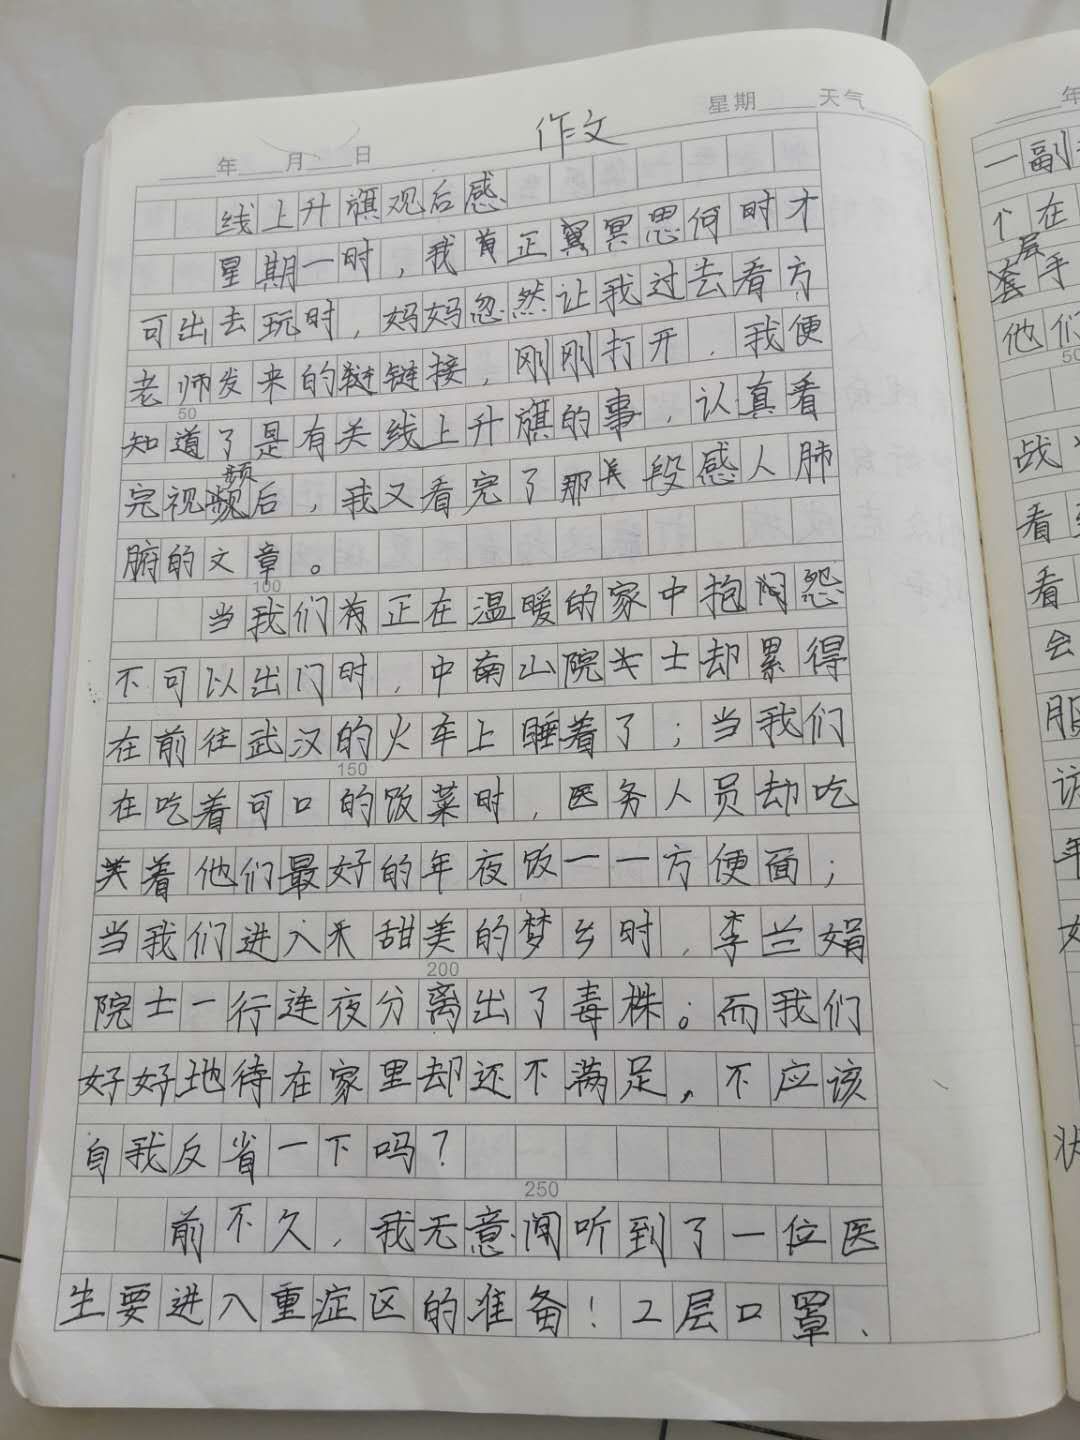 星期 天气
年 月 日 作文
线上升旗观后感
星期一时，我首正冥思何时才
可出去玩时，妈妈忽然让我过去看方
老师发来的链接，刚刚打开，我便
50
知道了是有关线上升旗的事，认真看
完视频后，我又看完了那段感人肺
腑的文章。
100
当我们有正在温暖的家中抱怨
不可以出门时，中南山院士却累得
在前往武汉的火车上睡着了；当我们
150
在吃着可口的饭菜时，医务人员却吃
着他们最好的年夜饭——方便面；
当我们进入甜美的梦乡时，李兰娟
200
院士一行连夜分离出了毒株。而我们
好好地待在家里却还不满足，不应该
自我反省一下吗？
250
前不久，我无意间听到了一位医
生要进入重症区的准备！2层口罩、
年
一副
个在
套层手
他们
50
战
看
看
会
服
年
状